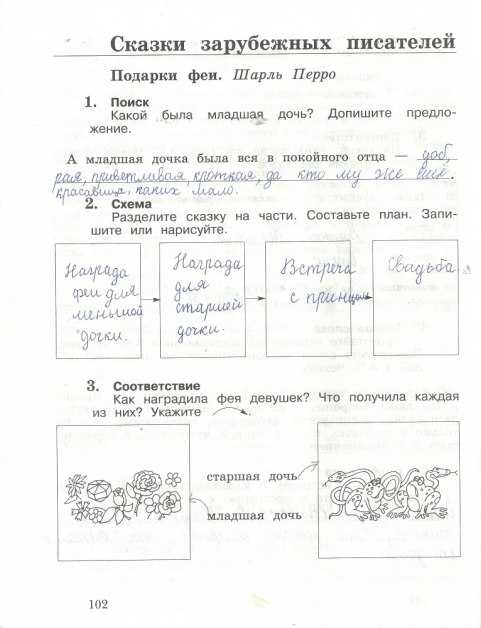 Сказки зарубежных писателей
Подарки феи. Шарль Перро
1. Поиск
Какой была младшая дочь? Допишите предло-
жение.
А младшая дочка была вся в покойного отца — доб,
рая, приветливая, кроткая, да кто му же ещё.
красавица, каких мало.
2. Схема
Разделите сказку на части. Составьте план. Запи-
шите или нарисуйте.
Награда феи для меньшой дочки.
Награда для старшей дочки.
Встреча с принцем
Свадьба
3. Соответствие
Как наградила фея девушек? Что получила каждая
из них? Укажите
старшая дочь
младшая дочь
102